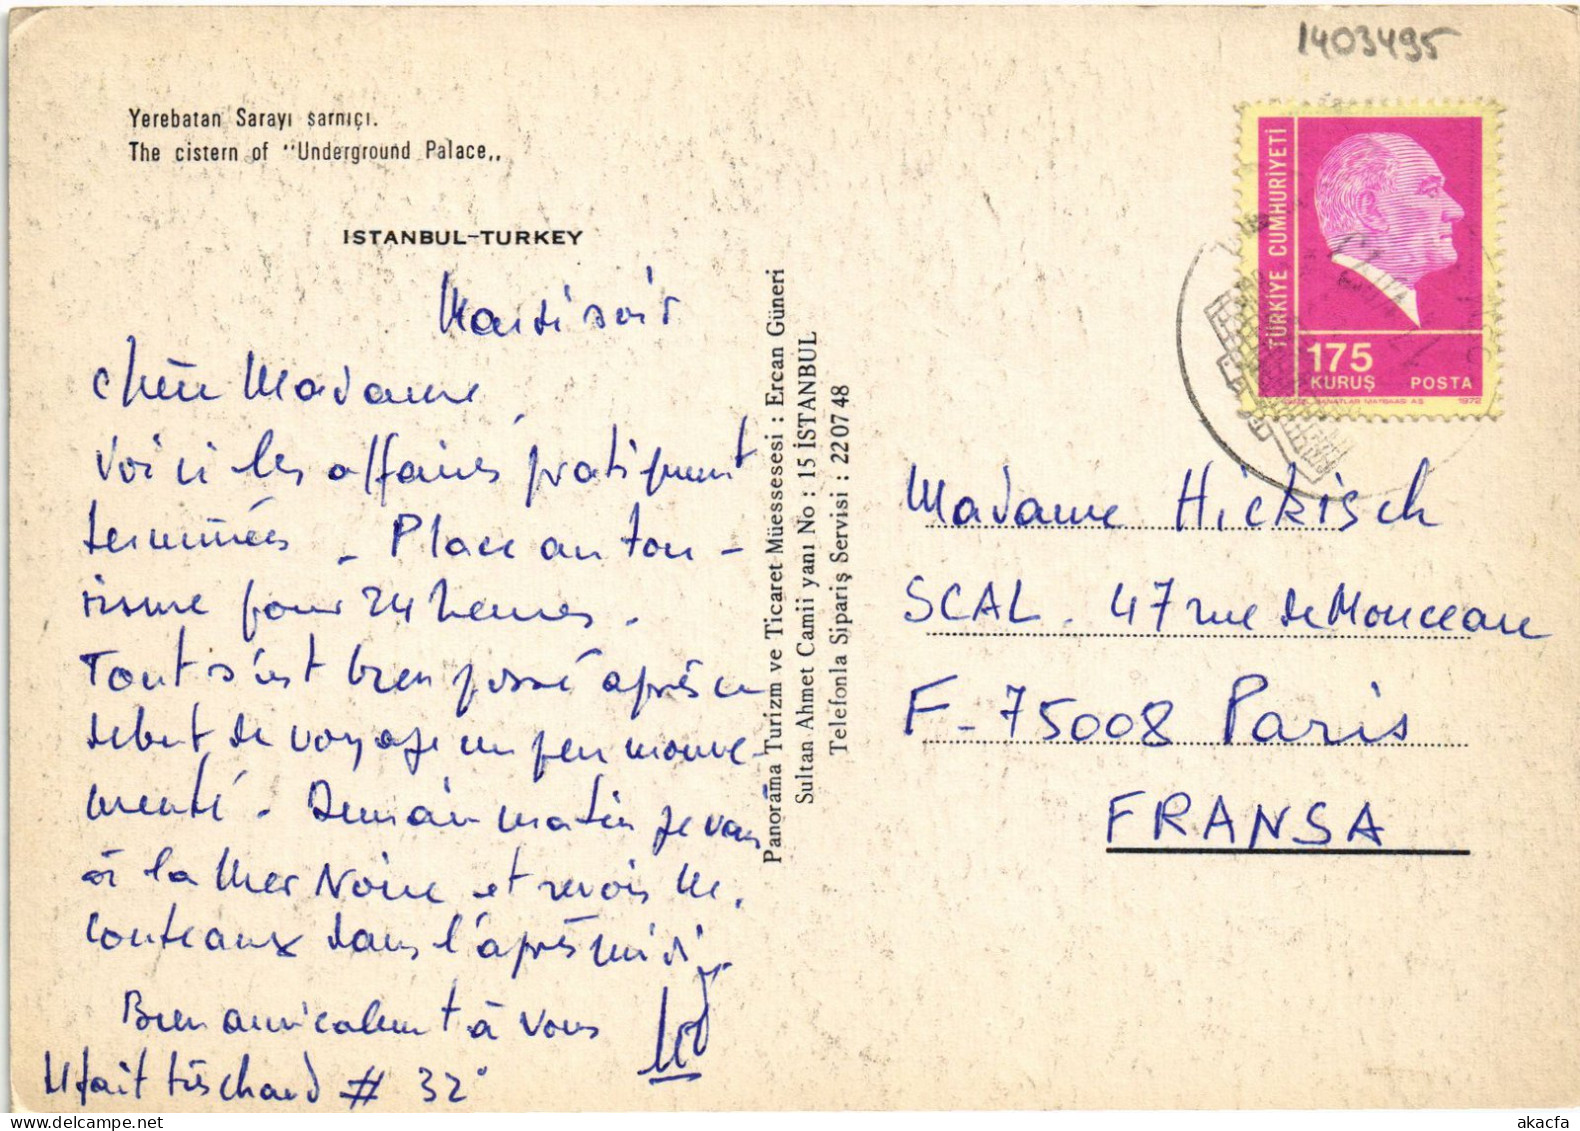 1403495
Yerebatan Sarayı sarnıçı.
The cistern of "Underground Palace,,
ISTANBUL-TURKEY
Mardi soir
Chère Madame,
Voici les affaires pratiquement
terminées - Place au tou-
risme pour 24 heures.
Tout s'est bien passé après un
debut de voyage un peu mouve-
menté. Demain matin je vais
à la Mer Noire et revois M.
Conteaux dans l'après midi
Bien amicalement à vous
Il fait très chaud # 32°
Panorama Turizm ve Ticaret Müessesesi : Ercan Güneri
Sultan Ahmet Camii yanı No : 15 İSTANBUL
Telefonla Sipariş Servisi : 22 07 48
TÜRKİYE CUMHURİYETİ
175
KURUŞ POSTA
1972
Madame Hickisch
SCAL. 47 rue de Monceau
F-75008 Paris
FRANSA
akacfa